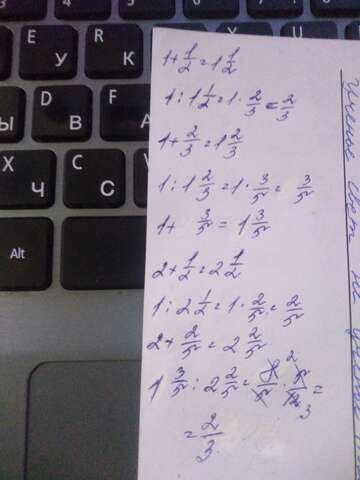 E
R
T
У
К
D
F
Ы
В
А
X
C
Ч
С
Alt
1+1/2=1 1/2
1:1 1/2=1·2/3=2/3
1+2/3=1 2/3
1:1 2/3=1·3/5=3/5
1+3/5=1 3/5
2+1/2=2 1/2
1:2 1/2=1·2/5=2/5
2+2/5=2 2/5
1 3/5:2 2/5=8/5 2·5/12 3=
=2/3